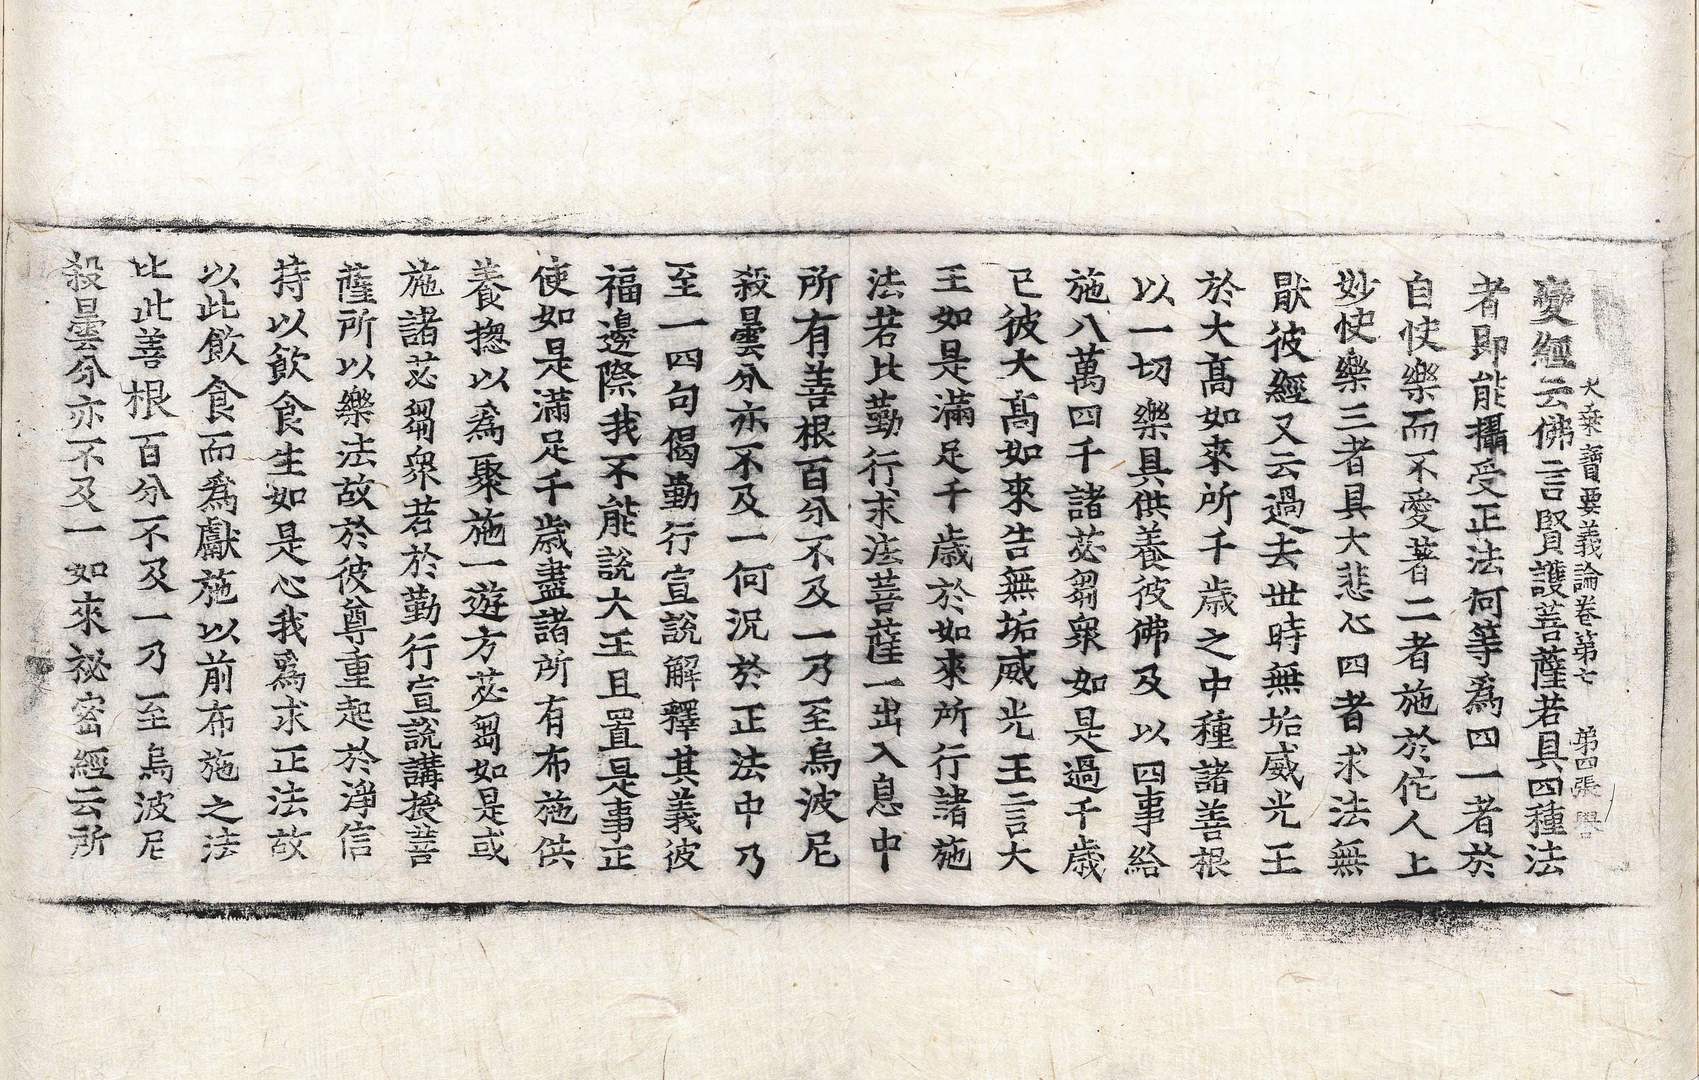 大乘寶要義論卷第七 第四張 譽
變經云佛言賢護菩薩若具四種法
者即能攝受正法何等爲四一者於
自快樂而不愛著二者施於佗人上
妙快樂三者具大悲心四者求法無
猒彼經又云過去世時無垢威光王
於大髙如來所千歳之中種諸善根
以一切樂具供養彼佛及以四事給
施八萬四千諸苾蒭衆如是過千歳
已彼大髙如來告無垢威光王言大
王如是滿足千歳於如來所行諸施
法若比勤行求法菩薩一出入息中
所有善根百分不及一乃至烏波尼
殺曇分亦不及一何況於正法中乃
至一四句偈勤行宣說解釋其義彼
福邊際我不能說大王且置是事正
使如是滿足千歳盡諸所有布施供
養揔以爲聚施一遊方苾蒭如是或
施諸苾蒭衆若於勤行宣說講授菩
薩所以樂法故於彼尊重起於淨信
持以飲食生如是心我爲求正法故
以此飲食而爲獻施以前布施之法
比此善根百分不及一乃至烏波尼
殺曇分亦不及一如來祕密經云所